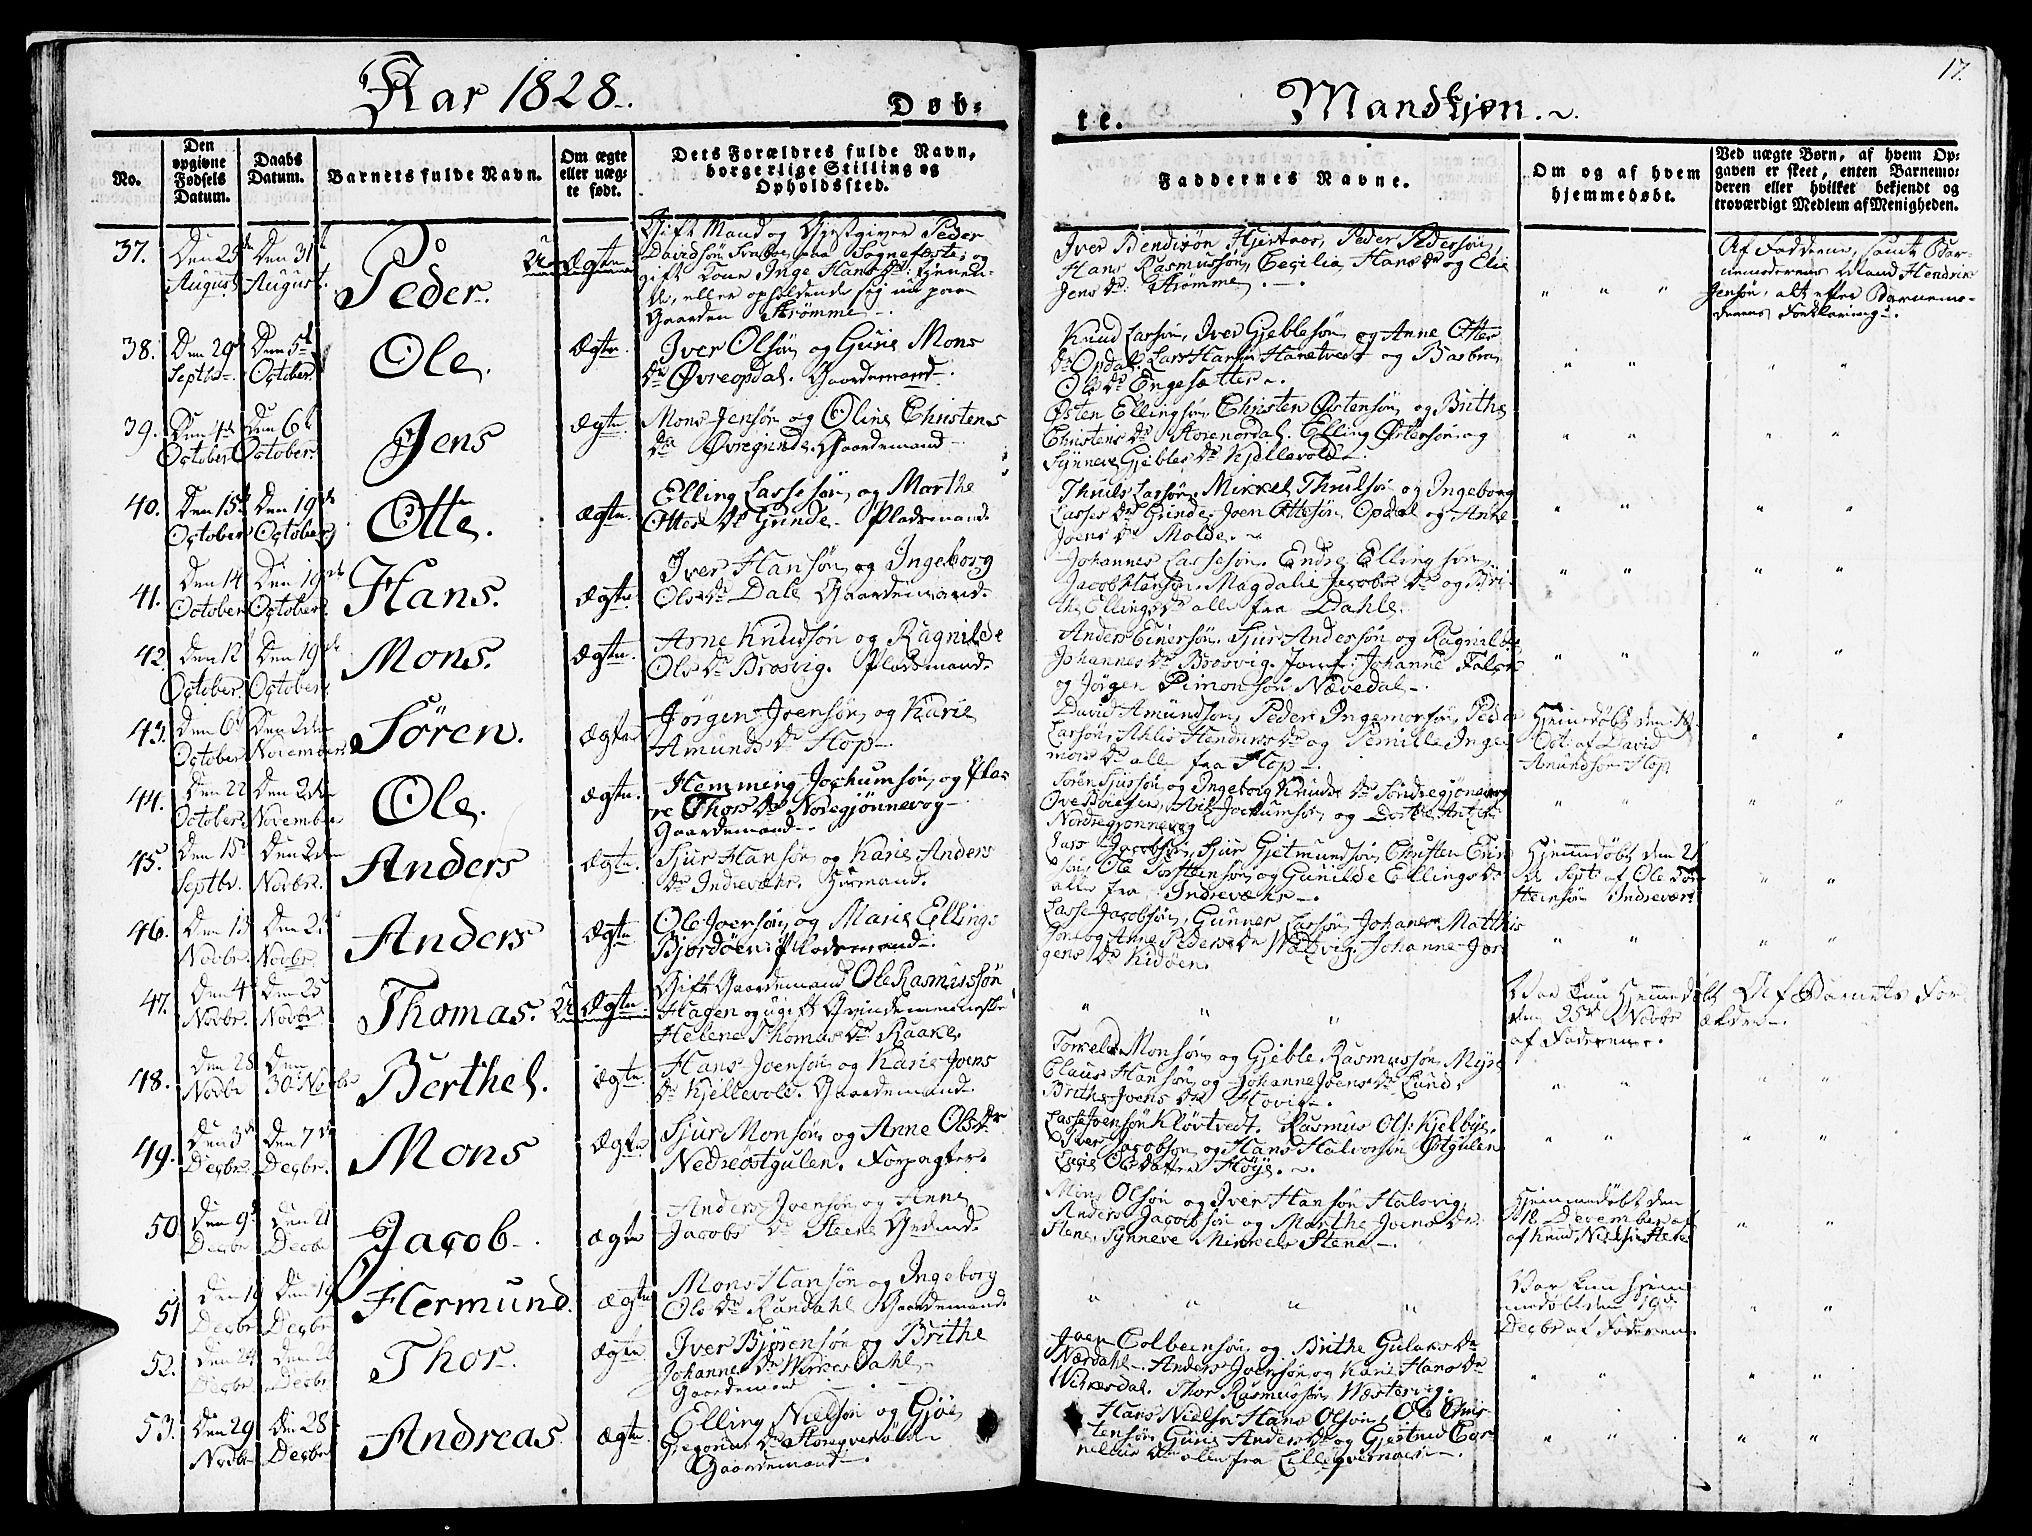 Aar 1828.
Døb-
No.
Den opgivne Fødsels Datum.
Daabs Datum.
Barnets fulde Navn.
Om ægte eller uægte født.
Dets Forældres fulde Navn, borgerlige Stilling og Opholdssted.
37. Den 25de August Den 31te August Peder. Uægte
Gift Mand og Gjestgiver Peder
Davidsøn paa Sognefæste; og
gift Kone Inge Hans Dr.
de, eller opholdende sig nu paa
Gaarden Strømme.
38. Den 29de Septbr. Den 5te October. Ole. Ægte.
Iver Olsøn og Gurie Mons
Dr Øvreopdal. Gaardemand.
39. Den 4de October Den 6te October. Jens Ægte.
Mons Jensøn og Oline Christens
Dr Øvregrinde. Gaardemand
40. Den 15de October Den 19de October Otte. Ægte.
Elling Lassesøn og Marthe
Ottes Dr Grinde. Pladsmand.
41. Den 14 October Den 19de October. Hans. Ægte.
Iver Hansøn og Ingeborg
Ols Dr Dale Gaardemand.
42. Den 12 October. Den 19de October. Mons. Ægte.
Arne Knudsøn og Ragnilde
Ols Dr Brosvig. Pladsmand.
43. Den 6te October Den 2den November. Søren. Ægte
Jørgen Joensøn og Karie
Amunds Dr Hop.
44. Den 22 October. Den 2den November Ole. Ægte.
Hemming Jochumsøn og Mar
re Thors Dr Noregjønnevog
Gaardemand.
45. Den 15de Septbr. Den 2den Novbr. Anders Ægte.
Sjur Hansøn og Karie Anders
Dr Indrevær. Huusmand.
46. Den 13 Novbr. Den 25 Novbr. Anders Ægte.
Ole Joensøn og Marie Ellings
Bjordøen Pladsmand.
47. Den 4de Novbr. Den 25 Novbr Thomas. Uægte.
Gift Gaardemand Ole Rasmussøn
Hagen og ugift Qvindemenneske
Helene Thomas Dr Raake.
48. Den 28 Novbr Den 30 Novbr Berthel. Ægte.
Hans Joensøn og Karie Joens
Dr Kjellevold. Gaardemand.
49. Den 3de Decbr. Den 7de Decbr. Mons Ægte
Sjur Monsøn og Anne Ols Dr
Nedreøstgulen. Forpagter.
50. Den 9de Decbr Den 21 Decbr Jacob. Ægte
Anders Joensøn og Anne
Jacobs Dr Steene
51 Den 19 Decbr Den 19 Decbr Hermund. Ægte
Mons Hansøn og Ingeborg
Ols Dr Randahl Gaardemand.
52. Decbr Decbr Thor. Ægte
Iver Bjørensøn og Brithe
Johannes Dr Virkesdahl
Gaardemand
53. Den 29 Novbr Den 28 Decbr Andreas. Ægte.
Elling Nielsøn og Gjøe
Gregorius Dr
Gaardemand.
te.
Mandkjøn.
17.
Faddernes Navne.
Om og af hvem hjemmedøbt.
Ved uægte Børn, af hvem Opgaven er skeet, enten Barnemoderen eller hvilket bekjendt og troværdigt Medlem af Menigheden.
Iver Bendixøn Hjertaas, Peder Pedersøn,
Hans Rasmussøn, Cecilia Hans Dr og Elie
Jens Dr Strømme.
Af Faddere, samt Bar-
nemoderens Mand Hendrik
Jensøn, alt efter Barnemo-
derens Forklaring.
Knud Larsøn, Iver Gjeblesøn og Anne Ottes
Dr Opdal. Lars Hansøn Hanetvedt og Barbra
Ols Dr Engesætter.
Østen Ellingsøn, Christen Østensøn og Brithe
Christens Dr Storenordal. Elling Østensøn og
Synneve Gjebles Dr Kjellevold.
Thruls Larsøn, Mikkel Thrulsøn og Ingeborg
Lasses Dr Grinde. Joen Ottesøn Opdal og Anne
Joens Dr Molde.
Johannes Lassesøn. Endre Ellingsøn,
Jacob Hansøn. Magdalie Jacobs Dr og Bri-
the Ellings Dr alle fra Dahle.
Anders Einersøn. Sjur Andersøn og Ragnilde
Johannes Dr Brosvig. Jomf: Johanne Falck
og Jørgen Simonsøn Nævedal.
David Amundsøn, Peder Ingemorsøn, Peder
Larsøn, Ahlis og Pernille Inge
mors Dr alle fra Hop.
Hjemmedøbt den
Oct: af David
Amundsøn Hop
Søren Sjursøn og Ingeborg Knuds Dr Søndregjønnevog
Jochumsøn og
Nordregjønnevog
Lars Jacobsøn, Sjur Gjetmundsøn, Christen Erik
søn, Ole Torsteinsøn og Gunilde Ellings Dr
alle fra Indrevær.
Hjemmedøbt den 21
Sept: af Ole Tor
steinsøn Indrevær.
Lasse Jacobsøn, Gunner Larsøn, Johanes Matthis
søn og Anne Peders Dr Wadvig. Johanne Jør
gens Dr Kidøen.
Var kun Hjemmedøbt
den 25de Novbr
af Faderen.
Af Barnets For-
ældre.
Torrels Monsøn og Gjeble Rasmussøn Myre
Claus Hansøn og Johanne Joens Dr Lund.
Brithe Joens Dr
Lasse Joensøn Kløvtvedt. Rasmus Ols: Kjelbye.
Iver Jacobsøn og Hans Halvorsøn Østgulen
Lucie Olsdatter Høye.
Mons Olsøn og Iver Hansøn Halsvig
Anders Jacobsøn og Marthe Joens Dr
Stene, Synneve Mikkels Stene.
Hjemmedøbt den
18 December af
af Knud Nielsøn Stene
Var kun hjem-
medøbt den 19de
Decbr af Faderen.
Joen Colbeensøn og Brithe Gulaks Dr
Nærdahl. Anders Joensøn og Karie Hans Dr
Virkesdal. Thor Rasmussøn Westervig.
Hans Nielsøn Hans Olsøn, Ole Chris-
tensøn Gurie Anders Dr og Gjertrud Cor-
nelius Dr alle fra